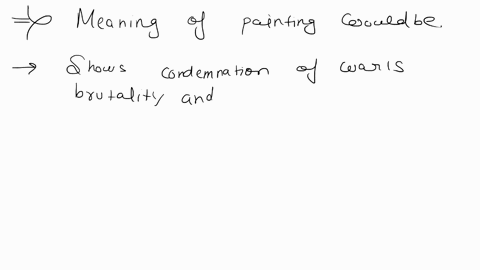 ⇒ Meaning of painting would be.
→ Shows condemnation of war's
brutality and